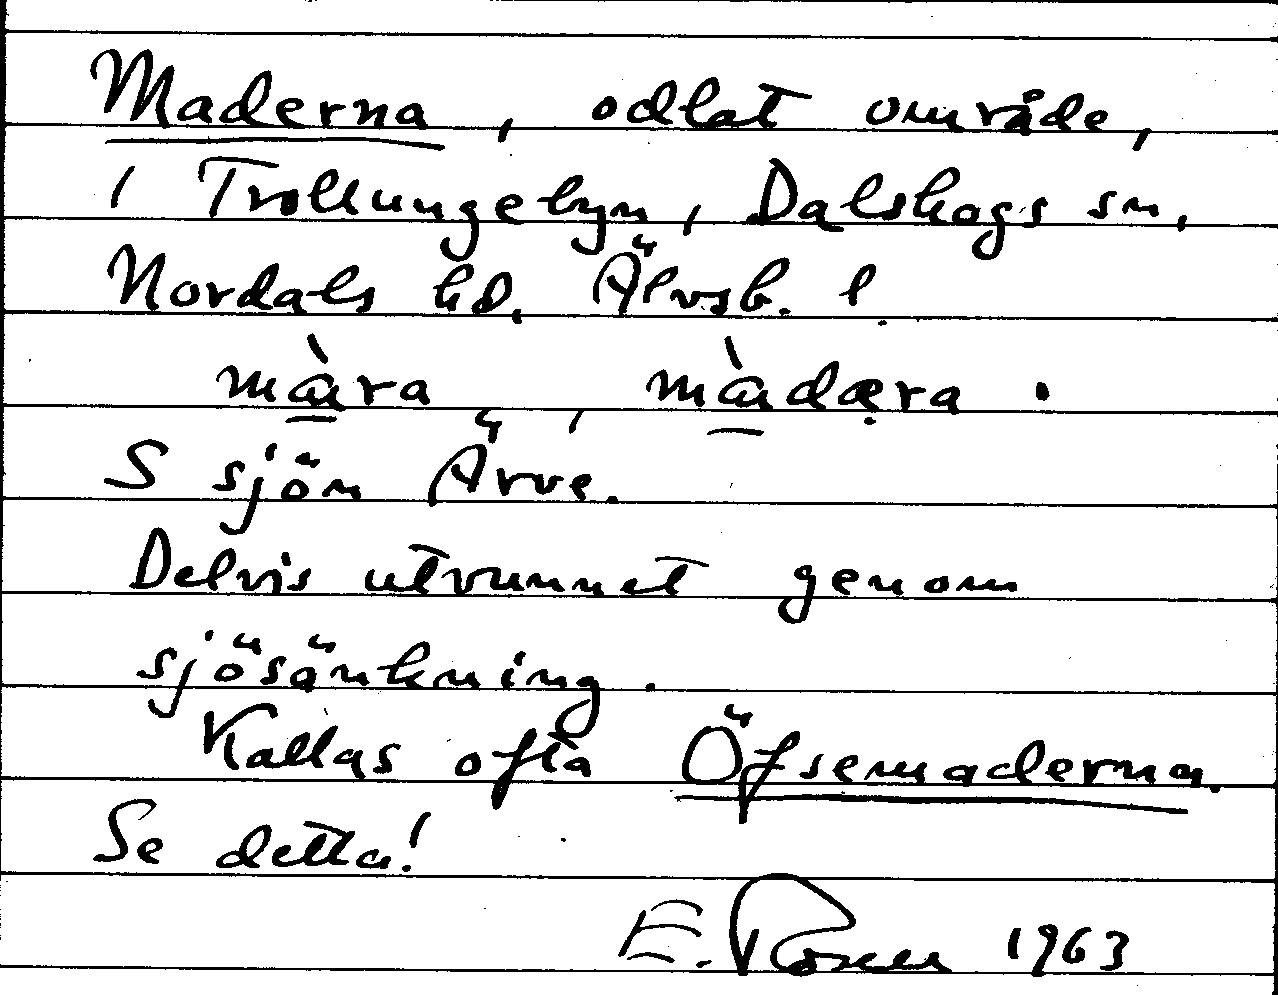 Maderna, odlat område,
i Trollungebyn, Dalskogs sn,
Nordals hd, Älvsb. l.
màra, màdæra.
S sjön Ärve.
Delvis utvunnet genom
sjösänkning.
Kallas ofta Öfsemaderna.
Se detta!
E. Rosell 1963